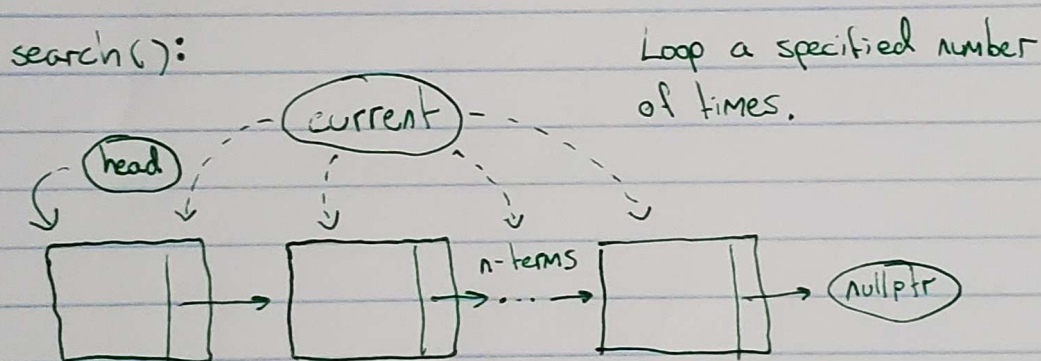 search():
Loop a specified number
of times.
current
head
n-terms
nullptr